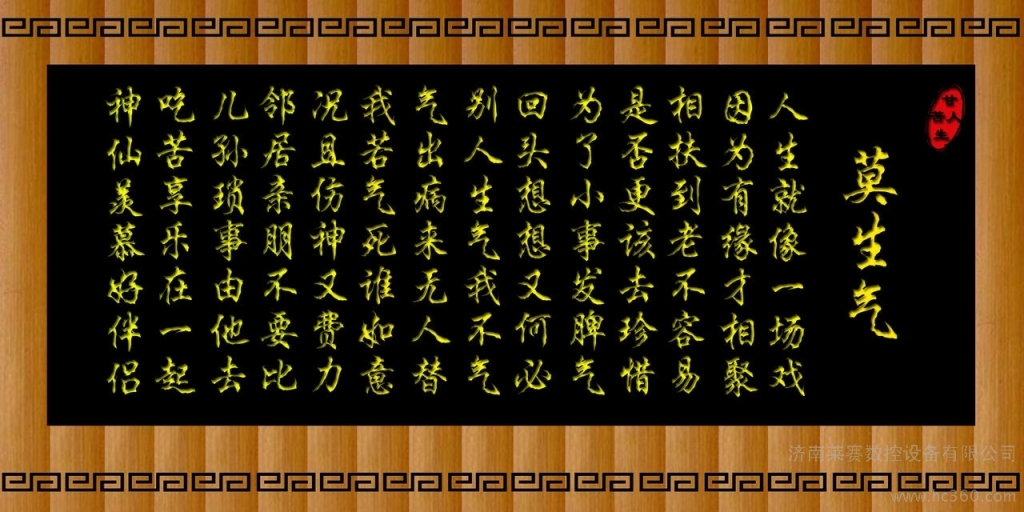 甘人
苦生
莫生气
人生就像一场戏
因为有缘才相聚
相扶到老不容易
是否更该去珍惜
为了小事发脾气
回头想想又何必
别人生气我不气
气出病来无人替
我若气死谁如意
况且伤神又费力
邻居亲朋不要比
儿孙琐事由他去
吃苦享乐在一起
神仙羡慕好伴侣
济南莱赛数控设备有限公司
www.hc360.com